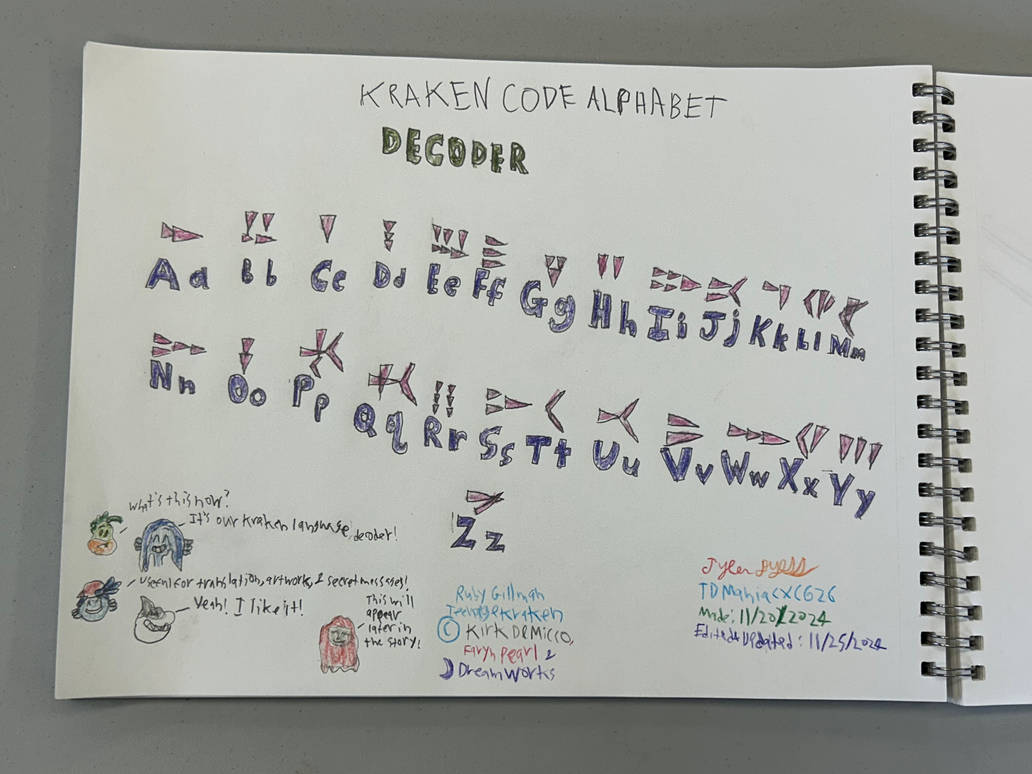 KRAKEN CODE ALPHABET
DECODER
Aa Bb Cc Dd Ee Ff Gg Hh Ii Jj Kk Ll Mm
Nn Oo Pp Qq Rr Ss Tt Uu Vv Ww Xx Yy
Zz
What's this now?
It's our Kraken language decoder!
Useful for translation, artwork, & secret messages!
Yeah! I like it!
This will
appear
later in
the story!
Ruby Gillman
Teenage Kraken
© Kirk DeMicco,
Faryn Pearl &
DreamWorks
Tyler
TDManiacXC626
Made: 11/20/2024
Edited & Updated: 11/25/2024